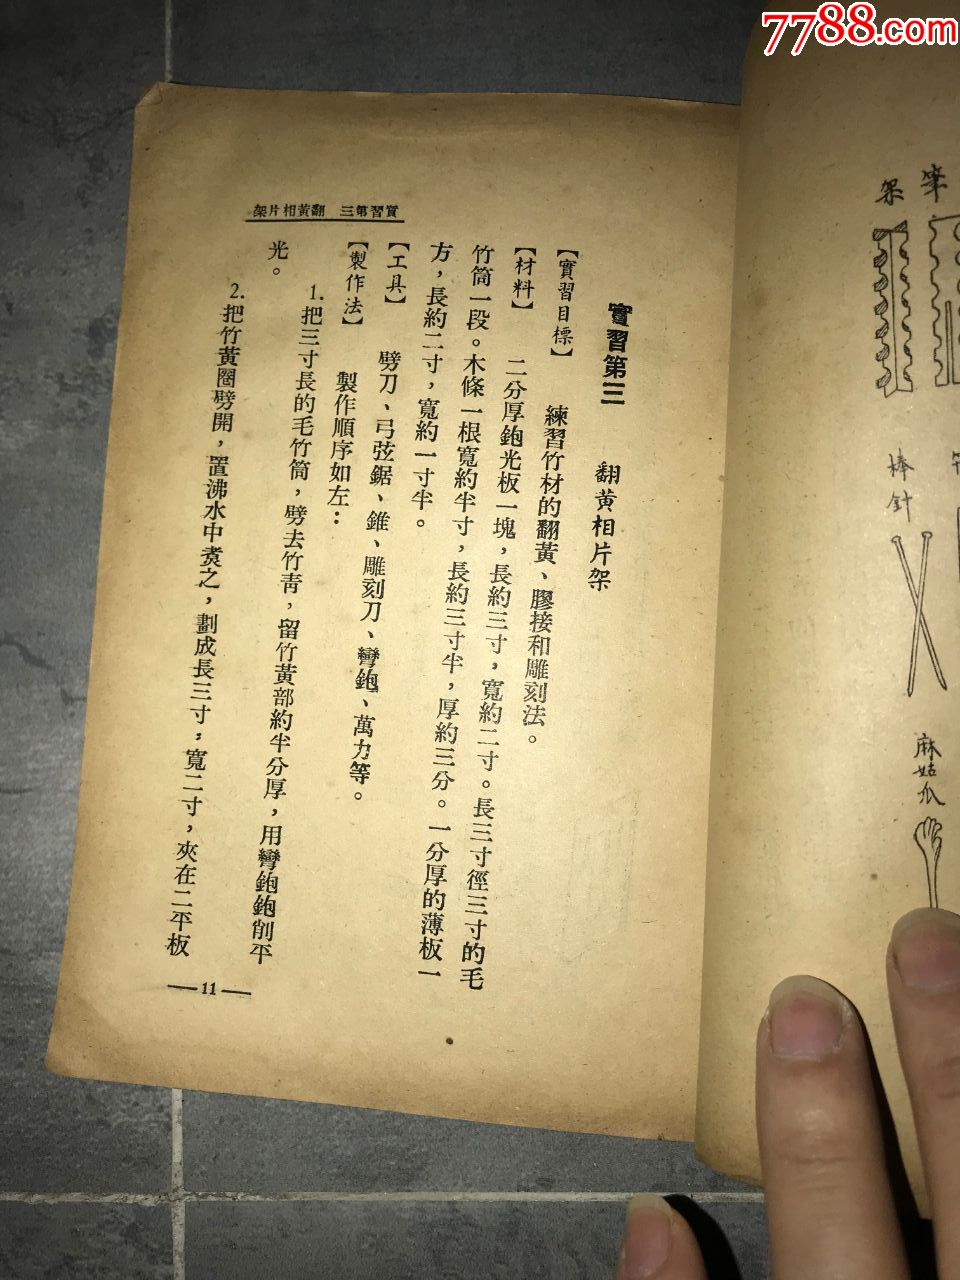 7788.com
實習第三　翻黃相片架
實習第三　翻黃相片架
【實習目標】　練習竹材的翻黃、膠接和雕刻法。
【材料】　二分厚鉋光板一塊，長約三寸，寬約二寸。長三寸徑三寸的毛
竹筒一段。木條一根寬約半寸，長約三寸半，厚約三分。一分厚的薄板一
方，長約二寸，寬約一寸半。
【工具】　劈刀、弓弦鋸、錐、雕刻刀、彎鉋、萬力等。
【製作法】　製作順序如左：
1.把三寸長的毛竹筒，劈去竹靑，留竹黃部約半分厚，用彎鉋鉋削平
光。
2.把竹黃圈劈開，置沸水中煑之，劃成長三寸，寬二寸，夾在二平板
—11—
架
棒針
麻姑爪